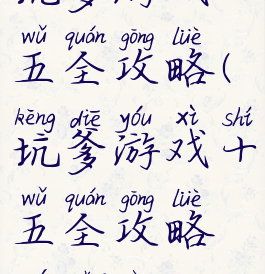 wǔ quán gōng lüè
五全攻略(
kēng diē yóu xì shí
坑爹游戏十
wǔ quán gōng lüè
五全攻略